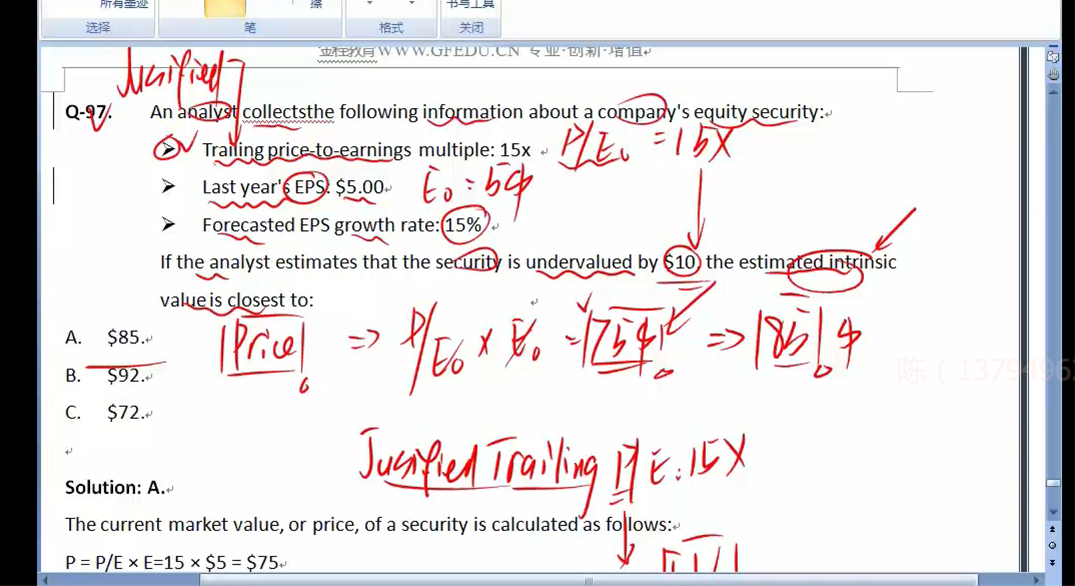 所有墨迹
擦
书与工具
选择
笔
格式
关闭
金程教育WWW.GFEDU.CN 专业·创新·增值
Jusified
Q-97. An analyst collectsthe following information about a company's equity security:
Trailing price-to-earnings multiple: 15x P/E₀ = 15X
Last year's EPS: $5.00 E₀ = 5$
Forecasted EPS growth rate: 15%
If the analyst estimates that the security is undervalued by $10, the estimated intrinsic
value is closest to:
A. $85.
B. $92.
C. $72.
Price₀ => P/E₀ × E₀ = 75$₀ => 85₀ $
Jusified Trailing P/E: 15X
Solution: A.
The current market value, or price, of a security is calculated as follows:
P = P/E × E=15 × $5 = $75